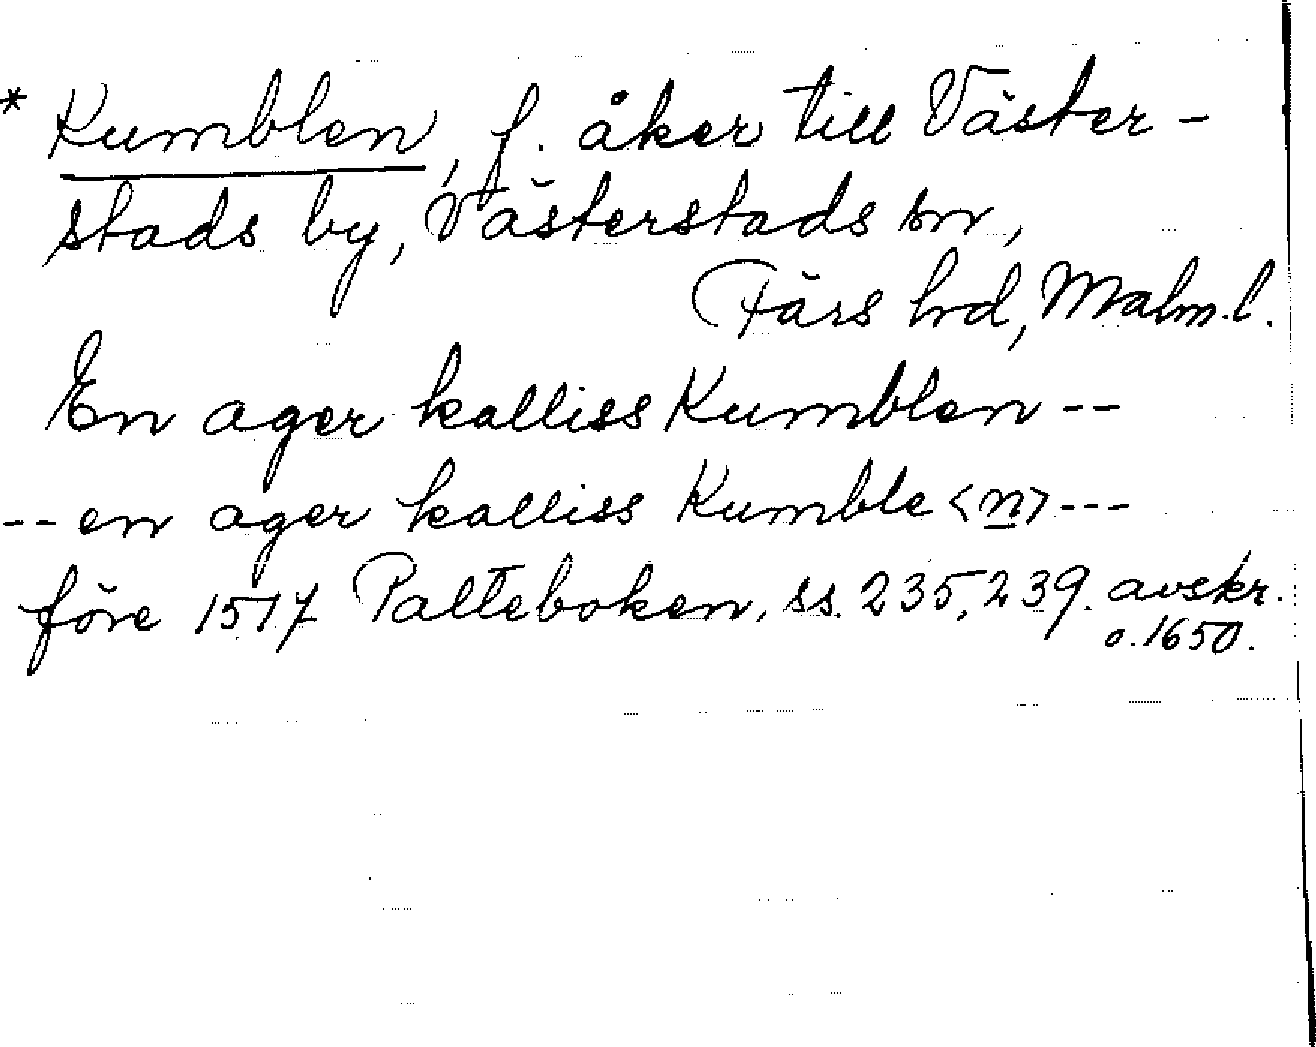 * Kumblen, f. åker till Väster-
stads by, Västerstads sn,
Färs hd, Malm.l.
En ager kalliss Kumblen --
-- en ager kalliss Kumble<n> ---
före 1517 Palteboken, ss. 235, 239. avskr.
o. 1650.